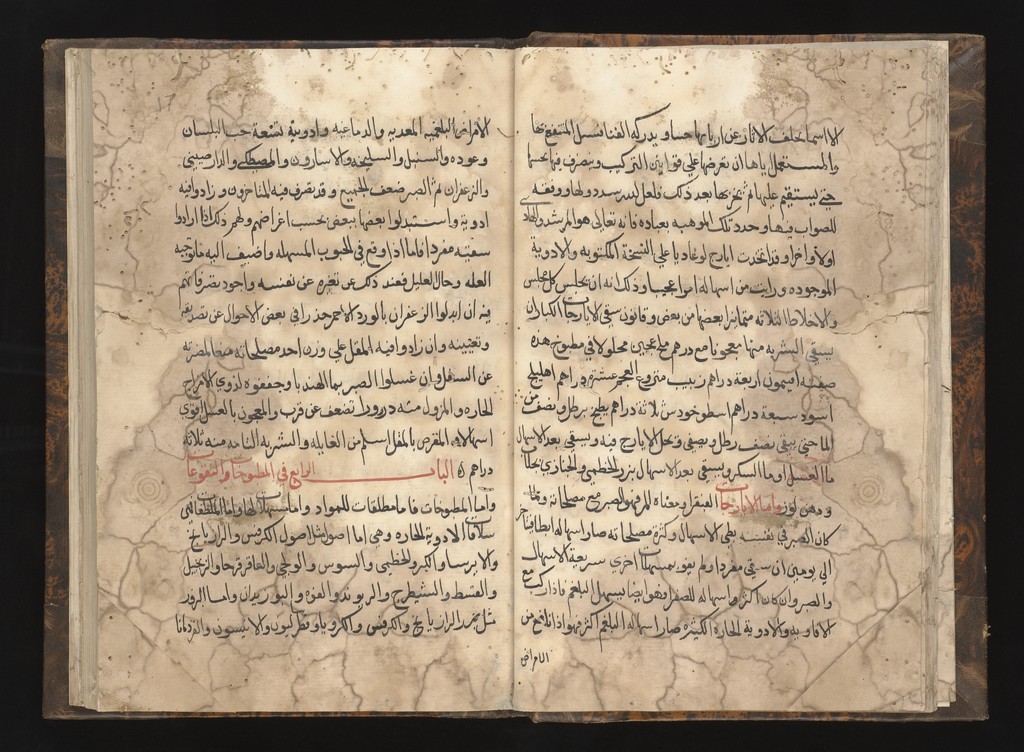 الاسما تخلف الاثار عن اربابها حسا ويدركه
والمستعمل اياها ان يعرضها على قوانين التركيب ويتصرف فيها بحسبها
حتى يستقيم عليها ثم يخرجها بعد ذلك
للصواب فيها وحدد تلك الموهبه بعباده فانه تعالى هو المرشد والهادي
اولا واخرا وقد اتخذت ايارج لوغاديا على النسخة المكتوبه والادوية
الموجوده ورايت من اسهاله امرا عجيبا وذلك انه ان يجلس كل مجلس
والاخلاط الثلاثه متمايزا بعضها من بعض وقانون سقي الايارجات الكبار ان
يسقى الشربه منها معجونا مع درهم ملح عجين محلولا في مطبوخ هذه
صفته افتيمون اربعة دراهم زبيب منزوع العجم عشرة دراهم اهليلج
اسود سبعة دراهم اسطوخودس ثلاثة دراهم يطبخ برطل ونصف من
الما حتى يبقى نصف رطل ويصفى ويحل الايارج فيه ويسقى بعد الاسهال
ما العسل او ما السكر ويسقى بعد الاسهال بزر الخطمي والخبازي بجلاب
ودهن لوز واما الايارجات الفيقرا ومعناه المر فهو الصبر مع مصلحاته
كان الصبر في نفسه بطي الاسهال وكثرة مصلحاته صار اسهاله ابطا فيتاخر
الى يومين ان سقي مفردا ولم يقو بمسهلات اخرى سريعة الاسهال
والصبر وان كان اكثر اسهاله للصفرا وهو ايضا يسهل البلغم فاذا ركب مع
الافاويه والادوية الحارة الكثيرة صار اسهاله البلغم اكثر فهو اذا نافع من
الامراض
الامراض البلغميه المعديه والدماغيه وادويته تسعة حب البلسان
وعوده والسنبل والسليخه والاسارون والمصطكى والدارصيني
والزعفران ثم الصبر ضعف الجميع وقد تصرف فيه المتاخرون وزادوا فيه
ادوية واستبدلوا بعضها ببعض بحسب اغراضهم ولهم ذلك اذا ارادوا
سقيه مفردا فاما اذا وقع في الحبوب المسهله واضيف اليه ما توجبه
العله وحال العليل فعند ذلك غن تغيره عن نفسه واجود تصرفاتهم
فيه ان ابدلوا الزعفران بالورد الاحمر حذرا في بعض الاحوال عن تصديعه
وتغثيته وان زادوا فيه المقل على وزن احد مصلحاته منعا لمضرته
عن السفل وان غسلوا الصبر بما الهندبا وجففوه لذوي الامزاج
الحاره والمعزول منه ذرورا تضعف عن قرب والمعجون بالعسل اقوى
اسهالا والمقرص بالمقل اسلم من الغايلة والشربه التامه منه ثلاثة
دراهم ه الباب الرابع في المطبوخات والنقوعات
واما المطبوخات فاما مطلقات للمواد واما مسهلات لها واما المطلقات فهي
سلاقات الادوية الحاره وهي اما اصول مثل اصول الكرفس والرازيانج
والايرسا والكبر والخطمي والسوس والوج والعاقرقرحا والزنجبيل
والقسط والشيطرج والريوند والفوه والبوزيدان واما البزور
مثل بزر الرازيانج والكرفس والكرويا وفطراساليون والانيسون والقردمانا